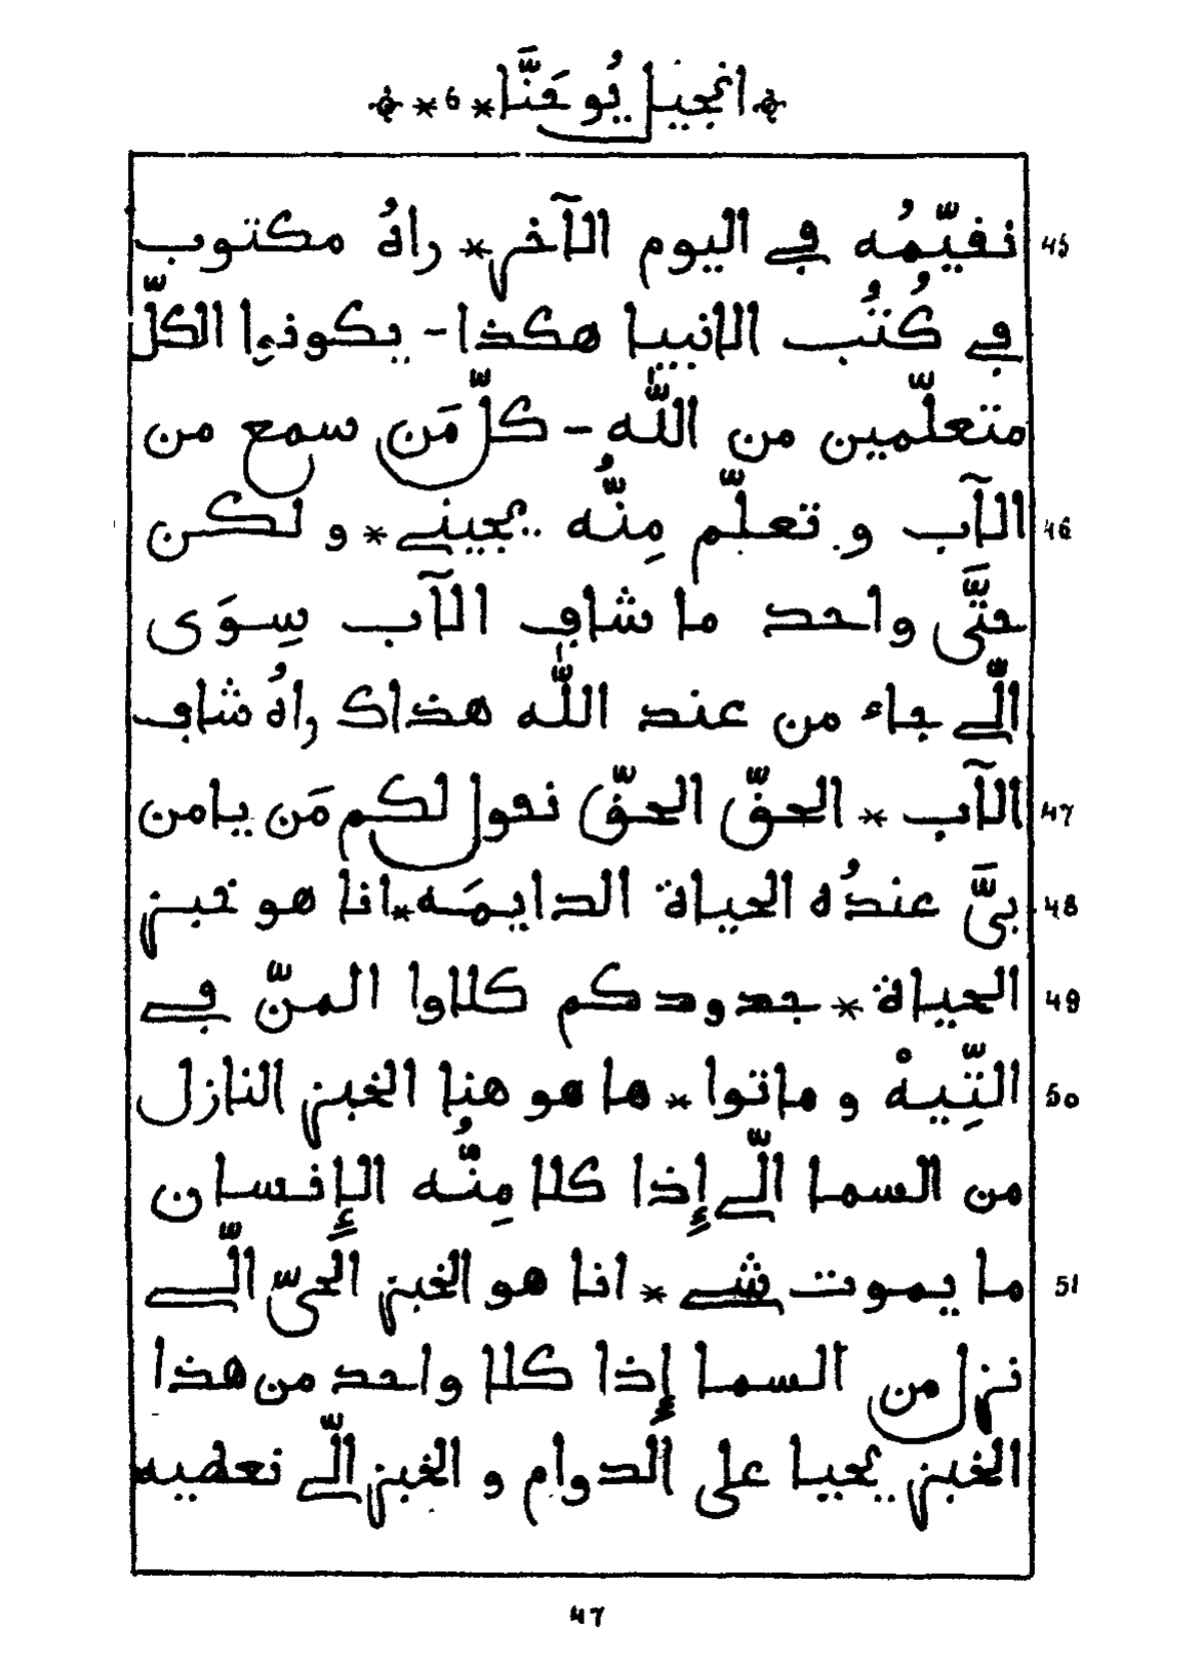 انجيل يُوحَنَّا * 6 *
نفيّمُه في اليوم الآخر * راهُ مكتوب 45
في كُتُب الانبيا هكذا - يكونوا الكلّ
متعلّمين من اللّٰه - كلّ مَن سمع من
الآب و تعلّم مِنُّه يجيني * و لكن 46
حتَّى واحد ما شاف الآب سِوَى
الّي جاء من عند اللّٰه هذاك راهُ شاف
الآب * الحقّ الحقّ نقول لكم مَن يامن 47
بيَّ عندُه الحياة الدايمَه * انا هو خبز 48
الحياة * جدودكم كلاوا المنّ في 49
التِّيهْ و ماتوا * ها هو هنا الخبز النازل 50
من السما الّي إِذا كلا مِنُّه الإِنسان
ما يموت شي * انا هو الخبز الحيّ الّي 51
نزل من السما إِذا كلا واحد من هذا
الخبز يحيا على الدوام و الخبز الّي نعطيه
47